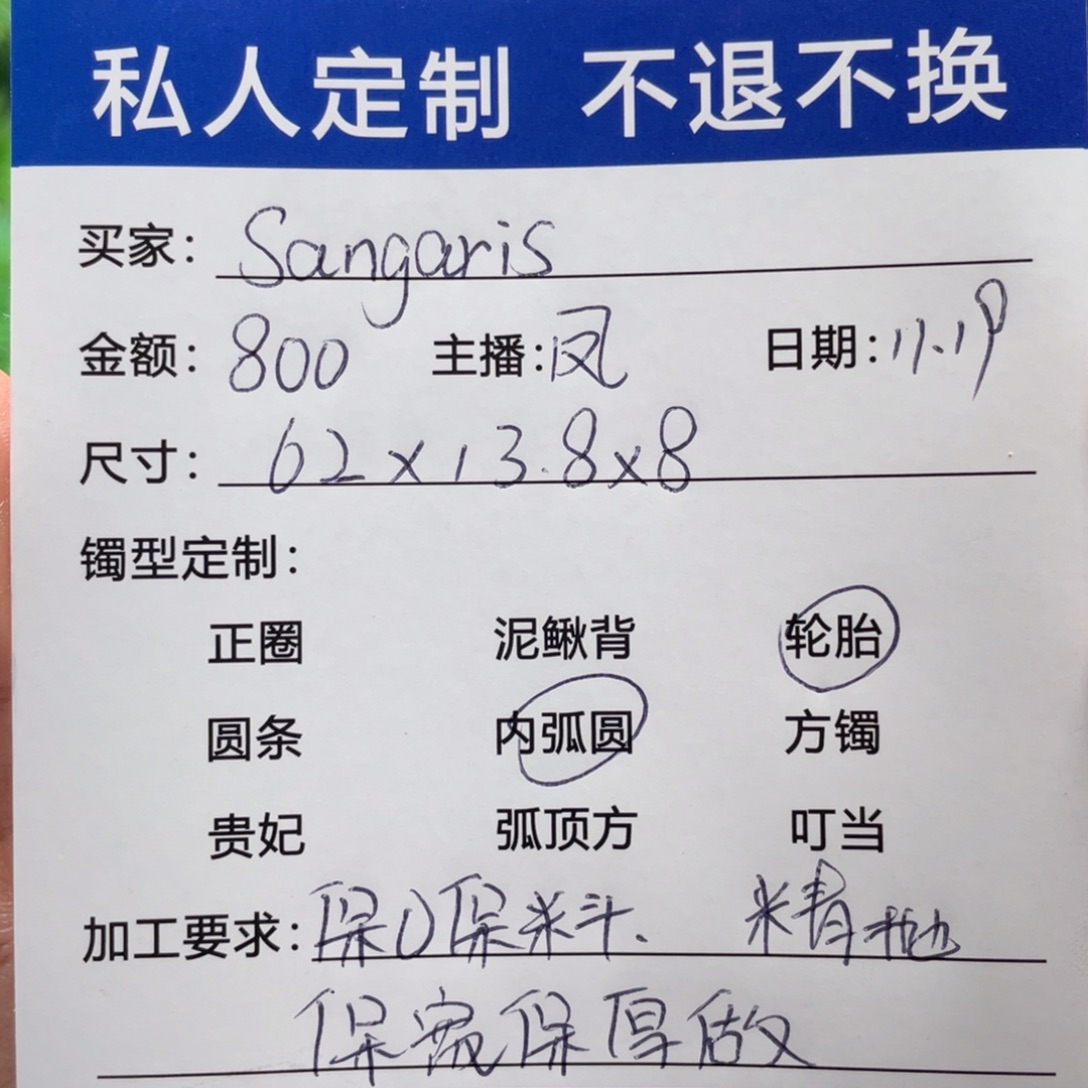 私人定制 不退不换
买家：Sangaris
金额：800 主播：凤 日期：11.19
尺寸：62×13.8×8
镯型定制：
正圈 泥鳅背 轮胎
圆条 内弧圆 方镯
贵妃 弧顶方 叮当
加工要求：保口保料、精抛
保宽保厚做